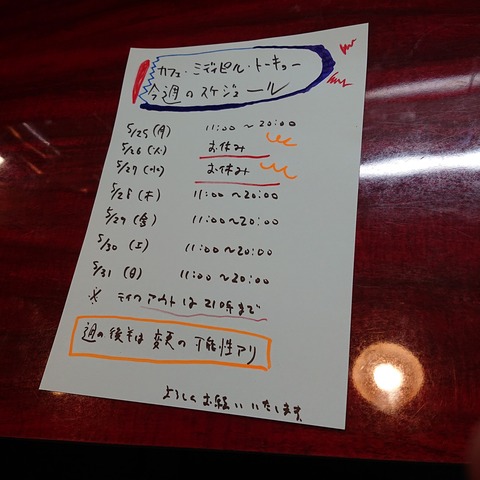 カフェ・ミディピル・トーキョー
今週のスケジュール
5/25(月) 11:00〜20:00
5/26(火) お休み
5/27(水) お休み
5/28(木) 11:00〜20:00
5/29(金) 11:00〜20:00
5/30(土) 11:00〜20:00
5/31(日) 11:00〜20:00
※ テイクアウトは21時まで
週の後半は変更の可能性アリ
よろしくお願いいたします